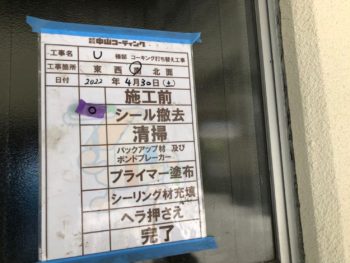 中山コーティング
工事名 U 様邸 コーキング打ち替え工事
工事箇所 東 西 南 北面
日付 2022年 4月30日(土)
施工前
○ シール撤去
清掃
バックアップ材 及び
ボンドブレーカー
プライマー塗布
シーリング材充填
ヘラ押さえ
完了